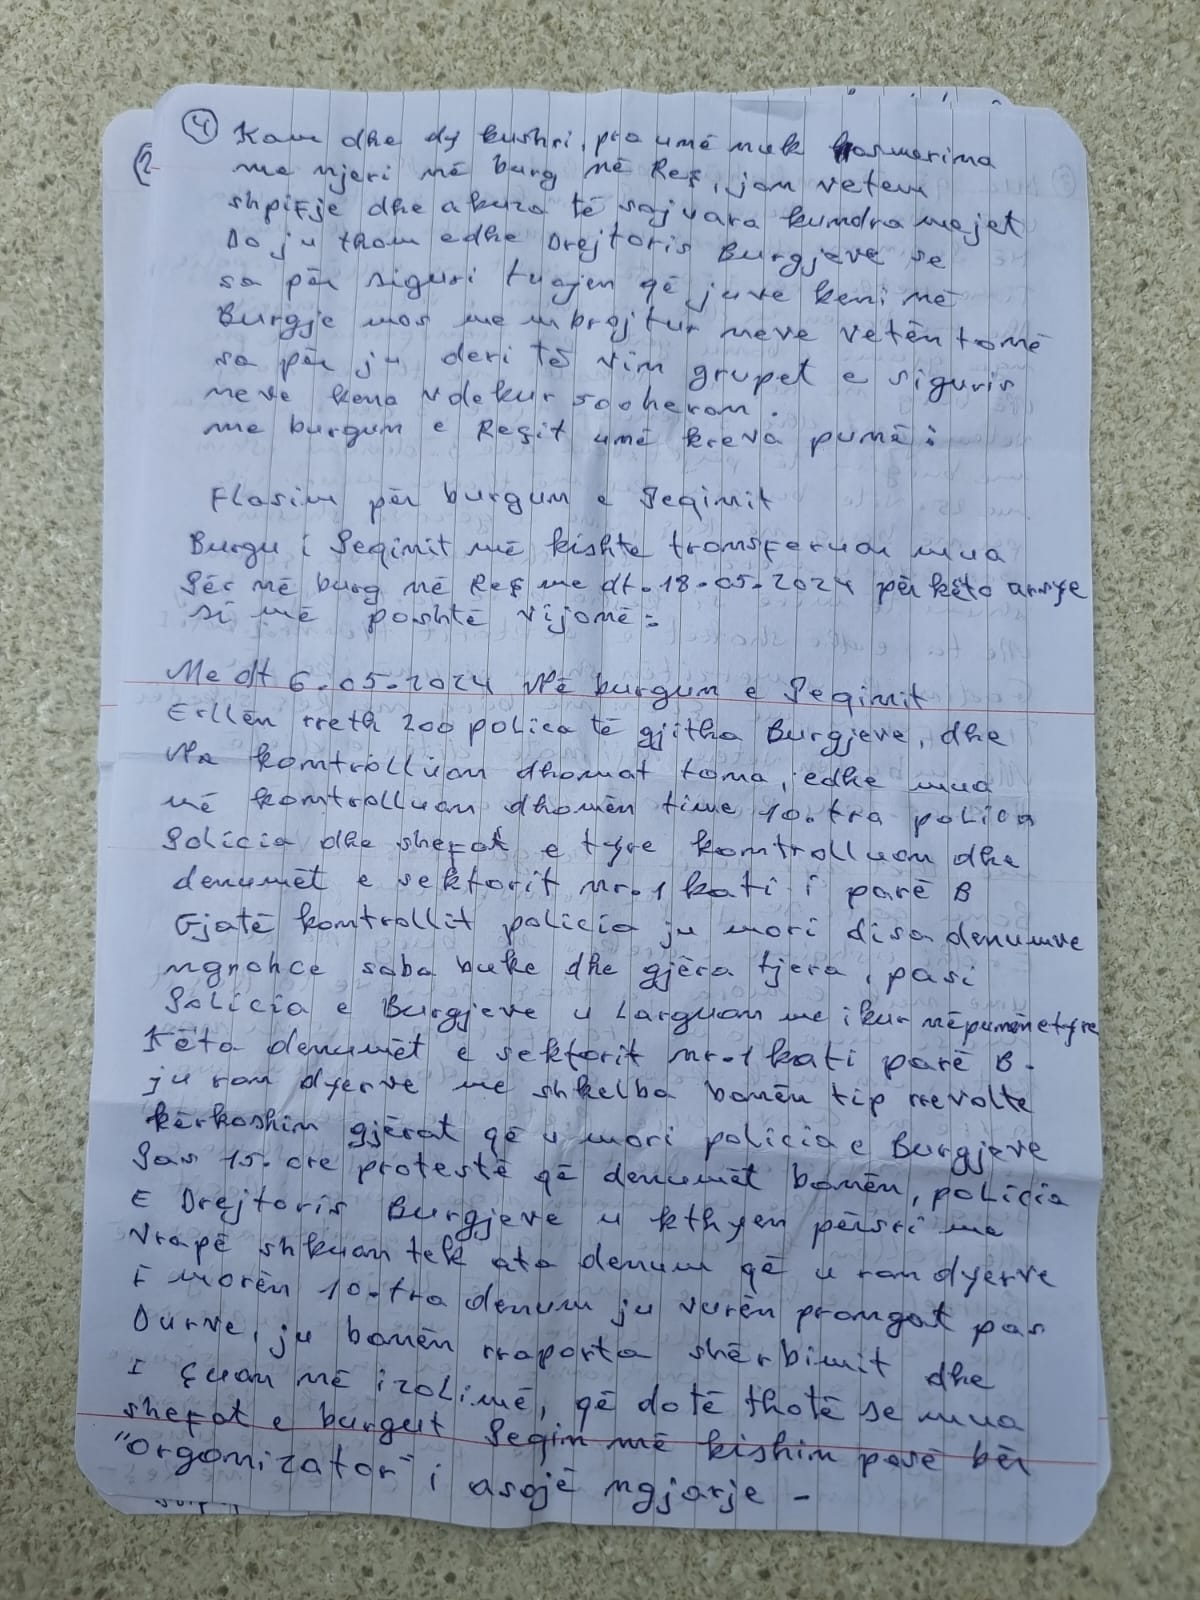 4 Kam dhe dy kushri, pra umë nuk kasmerina
me njeri në burg në Reç, jan vetem
shpifje dhe akuza të sajuara kundra mejet
Do ju thom edhe Drejtoris Burgjeve se
sa për siguri tuajen që juve keni në
Burgje mos me mbrojtur neve vetën tonë
sa për ju deri të vim grupet e siguris
neve kena vdekur sooheram.
me burgum e Reçit umë kreva punë:
Flasim për burgum e Peqinit
Burgu i Peqinit më kishte transferuar mua
Për në burg në Reç me dt. 18.05.2024 për këto arsye
si më poshtë vijomë:
Me dt 6.05.2024 Në burgum e Peqinit
Erllën rreth 200 polica të gjitha Burgjeve, dhe
Na kontrolluan dhomat tona, edhe mua
më kontrolluan dhomën time 10.tra polica
Policia dhe shefat e tyre kontrolluan dhe
denumët e sektorit nr.1 kati i parë B
Gjatë kontrollit policia ju mori disa denumve
ngrohce saba buke dhe gjëra tjera, pasi
Policia e Burgjeve u Larguan me ikur në punën e tyre
Këta denumët e sektorit nr.1 kati parë B.
ju ran dyerve me shkelba bonën tip rrevolte
kërkoshin gjërat që u mori policia e Burgjeve
Pas 15.ore protestë që denumët bonën, policia
E Drejtoris Burgjeve u kthyen përsri me
Vrapë shkuan tek ata denum që u ran dyerve
E morën 10.tra denum ju vurën prangat pas
Durve, ju bonën rraporta shërbimit dhe
I çuan në izolimë, që do të thotë se mua
shefat e burgut Peqin më kishin pasë bër
"orgonizator" i asajë ngjarje -